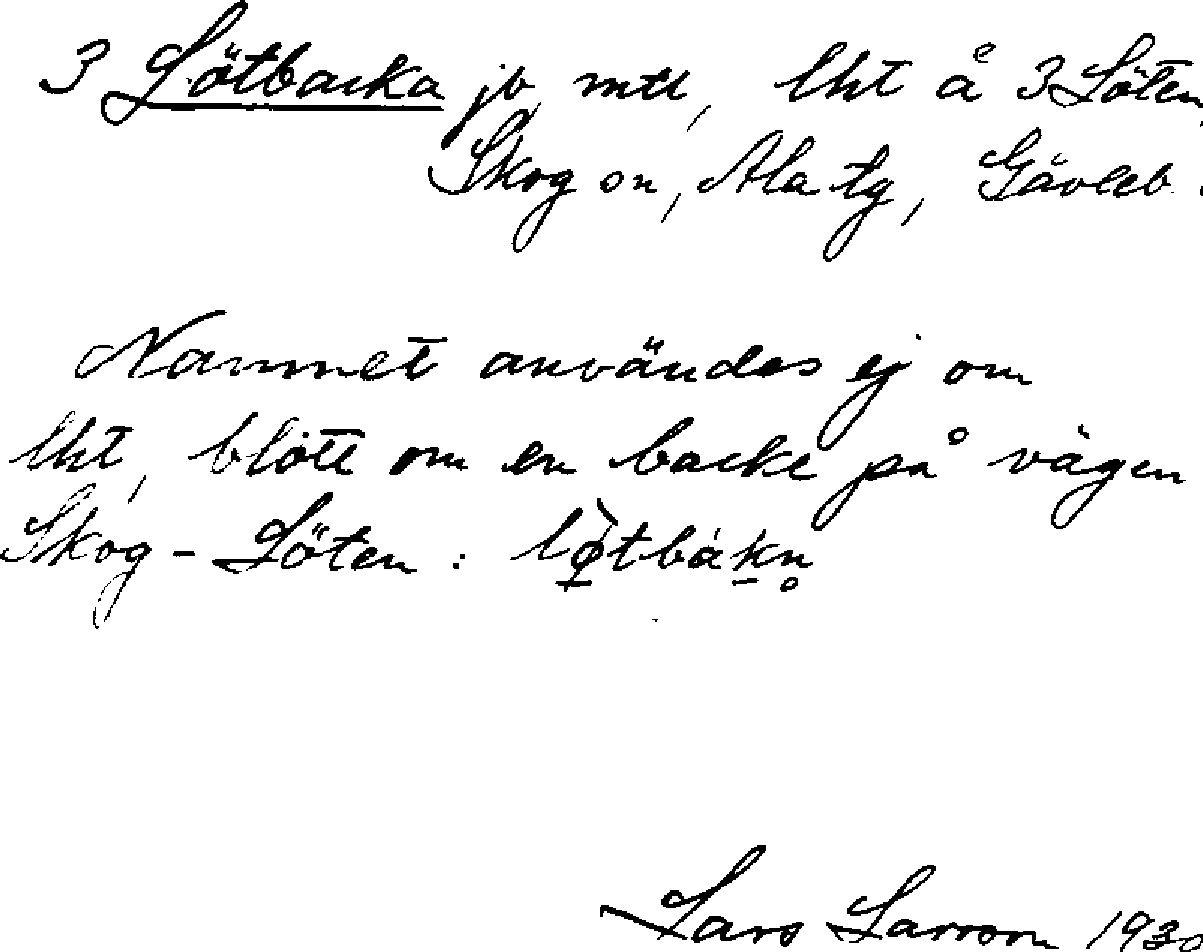 3 Lötbacka jb, mtl, lht å 3 Löten,
Skog sn, Ala tg, Gävleb.
Namnet användes ej om
lht, blott om en backe på vägen
Skog - Löten :
Lars Larsson 1930